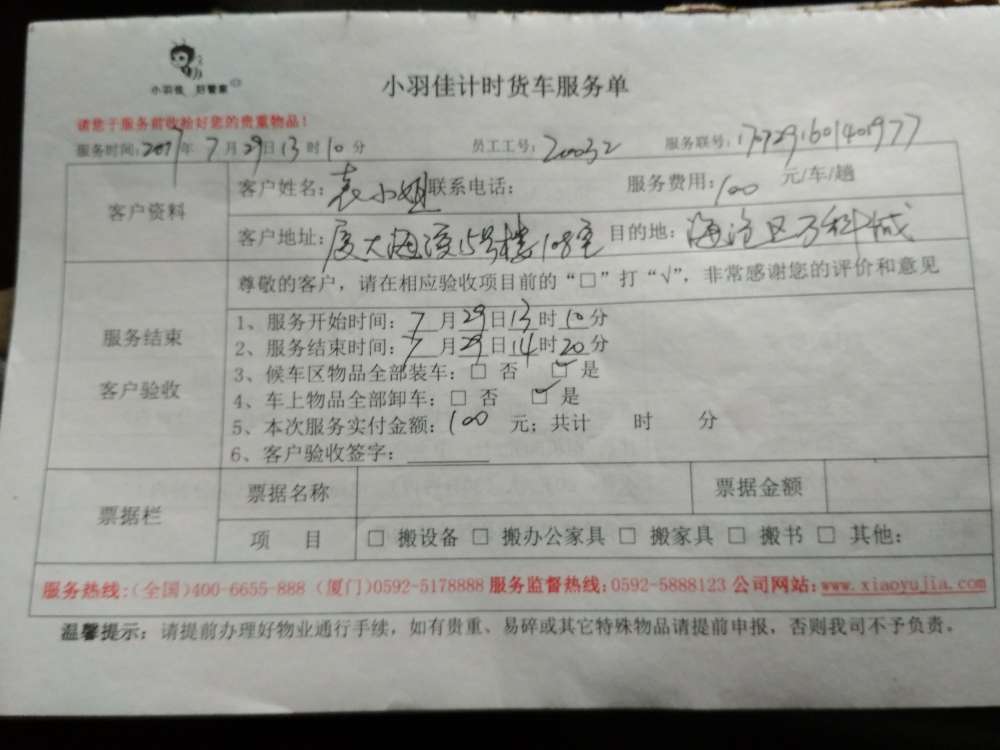 小羽佳 好管家
小羽佳计时货车服务单
请您于服务前收拾好您的贵重物品！
服务时间：2017年7月29日13时10分 员工工号：20032 服务联号：1707291601401977
客户资料
客户姓名：袁小姐 联系电话： 服务费用：100 元/车/趟
客户地址：厦大海滨15号楼108室 目的地：海沧区万科城
尊敬的客户，请在相应验收项目前的“□”打“√”，非常感谢您的评价和意见
服务结束
客户验收
1、服务开始时间：7月29日13时10分
2、服务结束时间：7月29日14时20分
3、候车区物品全部装车：□ 否 ☑ 是
4、车上物品全部卸车：□ 否 ☑ 是
5、本次服务实付金额：100 元；共计 时 分
6、客户验收签字：
票据栏
票据名称 票据金额
项 目 □ 搬设备 □ 搬办公家具 □ 搬家具 □ 搬书 □ 其他：
服务热线：(全国)400-6655-888 (厦门)0592-5178888 服务监督热线：0592-5888123 公司网站：www.xiaoyujia.com
温馨提示：请提前办理好物业通行手续，如有贵重、易碎或其它特殊物品请提前申报，否则我司不予负责。